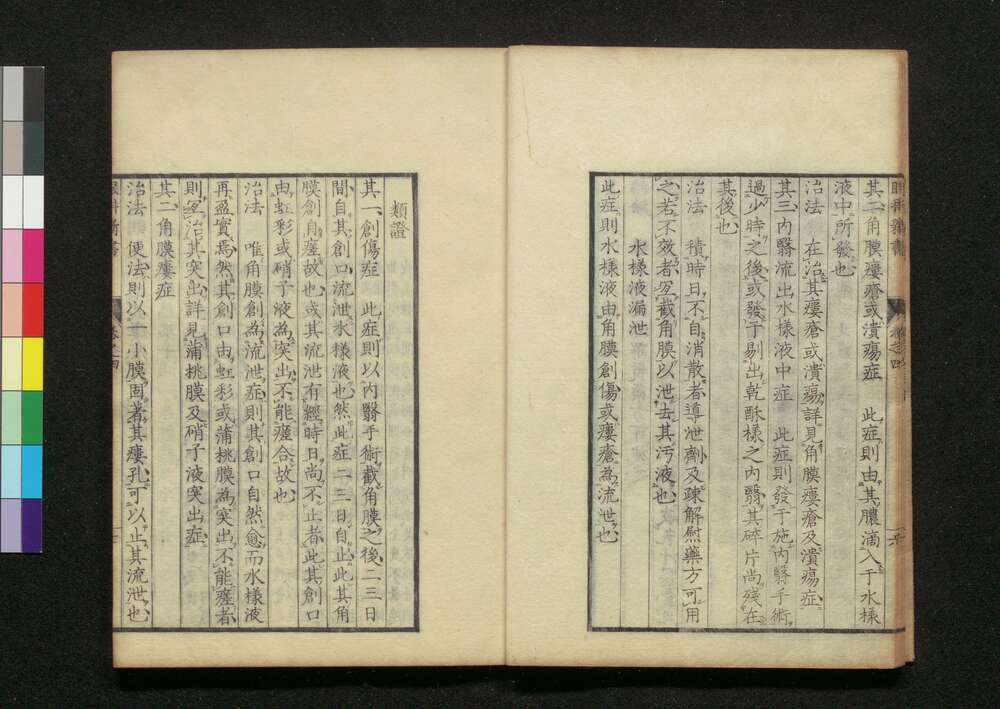 其二角膜瘻瘡或潰瘍症　此症則由其膿滴入于水樣
液中所發也
治法　在治其瘻瘡或潰瘍詳見角膜瘻瘡及潰瘍症
其三内翳流出水樣液中症　此症則發于施内翳手術
過少時之後或發于剔出乾酥樣之内翳其碎片尚殘在
其後也
治法　積時日不自消散者導泄劑及疎解慰藥方可用
之若不效者宜截角膜以泄去其汚液也
水樣液漏泄
此症則水樣液由角膜創傷或瘻瘡為流泄也
類證
其一創傷症　此症則以内翳手術截角膜之後二三日
間自其創口流泄水樣液也然此症二三日自止此其角
膜創自癒故也或其流泄有經時日尚不止者此其創口
由虹彩或硝子液為突出不能癒合故也
治法　唯角膜創為流泄症則其創口自然愈而水樣液
再盈實焉然其創口由虹彩或蒲桃膜為突出不能癒者
則宜治其突出詳見蒲桃膜及硝子液突出症
其二角膜瘻症
治法　便法則以一小膜固著其瘻孔可以止其流泄也
眼科新書
卷之四